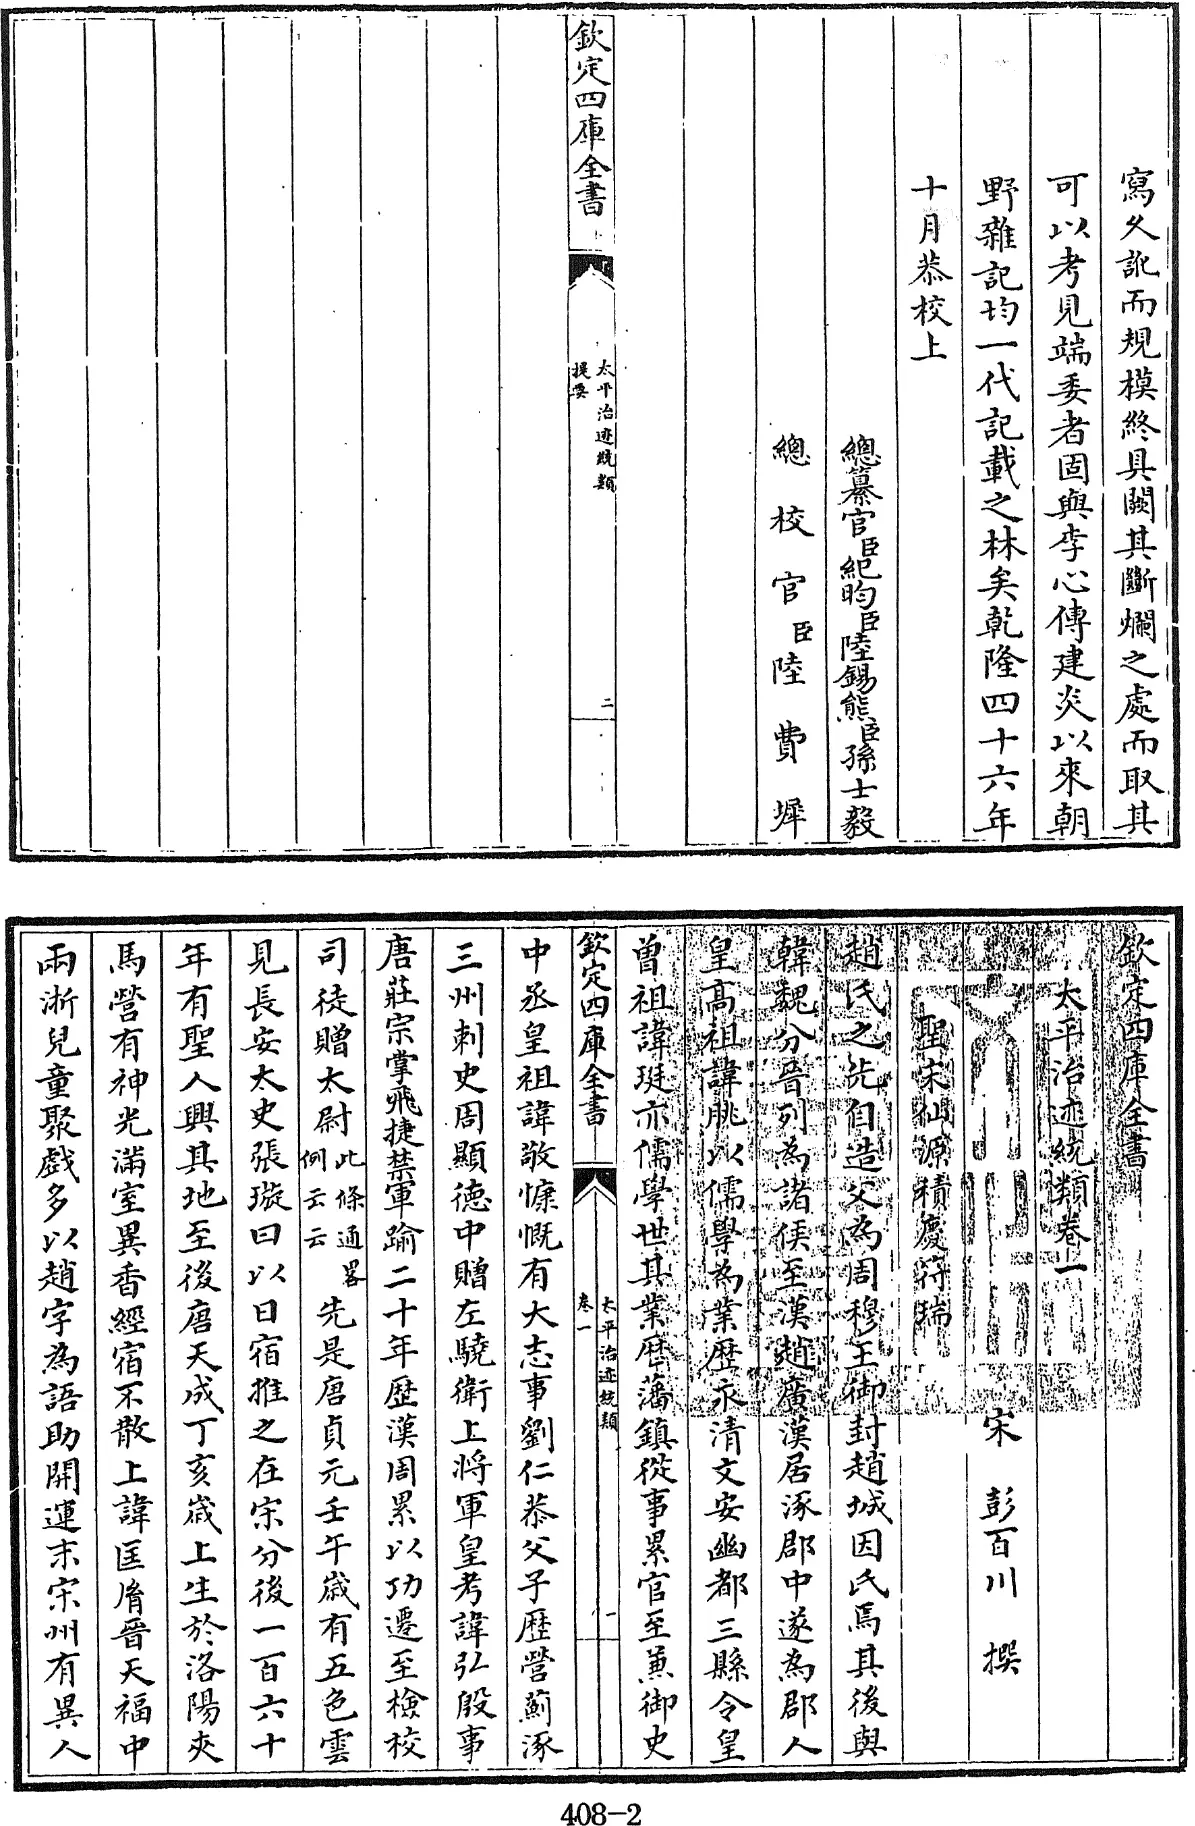 寫久訛而規模終具闕其斷爛之處而取其
可以考見端委者固與李心傳建炎以來朝
野雜記均一代記載之林矣乾隆四十六年
十月恭校上
總纂官臣紀昀臣陸錫熊臣孫士毅
總校官臣陸費墀
欽定四庫全書
太平治迹統類
提要
二
欽定四庫全書
太平治迹統類卷一
宋 彭百川 撰
聖宋仙源積慶符瑞
趙氏之先自造父為周穆王御封趙城因氏焉其後與
韓魏分晉列為諸侯至漢趙廣漢居涿郡中遂為郡人
皇高祖諱朓以儒學為業歴永清文安幽都三縣令皇
曽祖諱珽亦儒學世其業歴藩鎮從事累官至兼御史
欽定四庫全書
太平治迹統類
卷一
一
中丞皇祖諱敬慷慨有大志事劉仁恭父子歴營薊涿
三州刺史周顯德中贈左驍衛上將軍皇考諱弘殷事
唐莊宗掌飛捷禁軍踰二十年歴漢周累以功遷至檢校
司徒贈太尉此條通畧例云云先是唐貞元壬午歳有五色雲
見長安太史張璇曰以日宿推之在宋分後一百六十
年有聖人興其地至後唐天成丁亥歳上生於洛陽夾
馬營有神光滿室異香經宿不散上諱匡𦙍晉天福中
兩浙兒童聚戲多以趙字為語助開運末宋州有異人
408-2